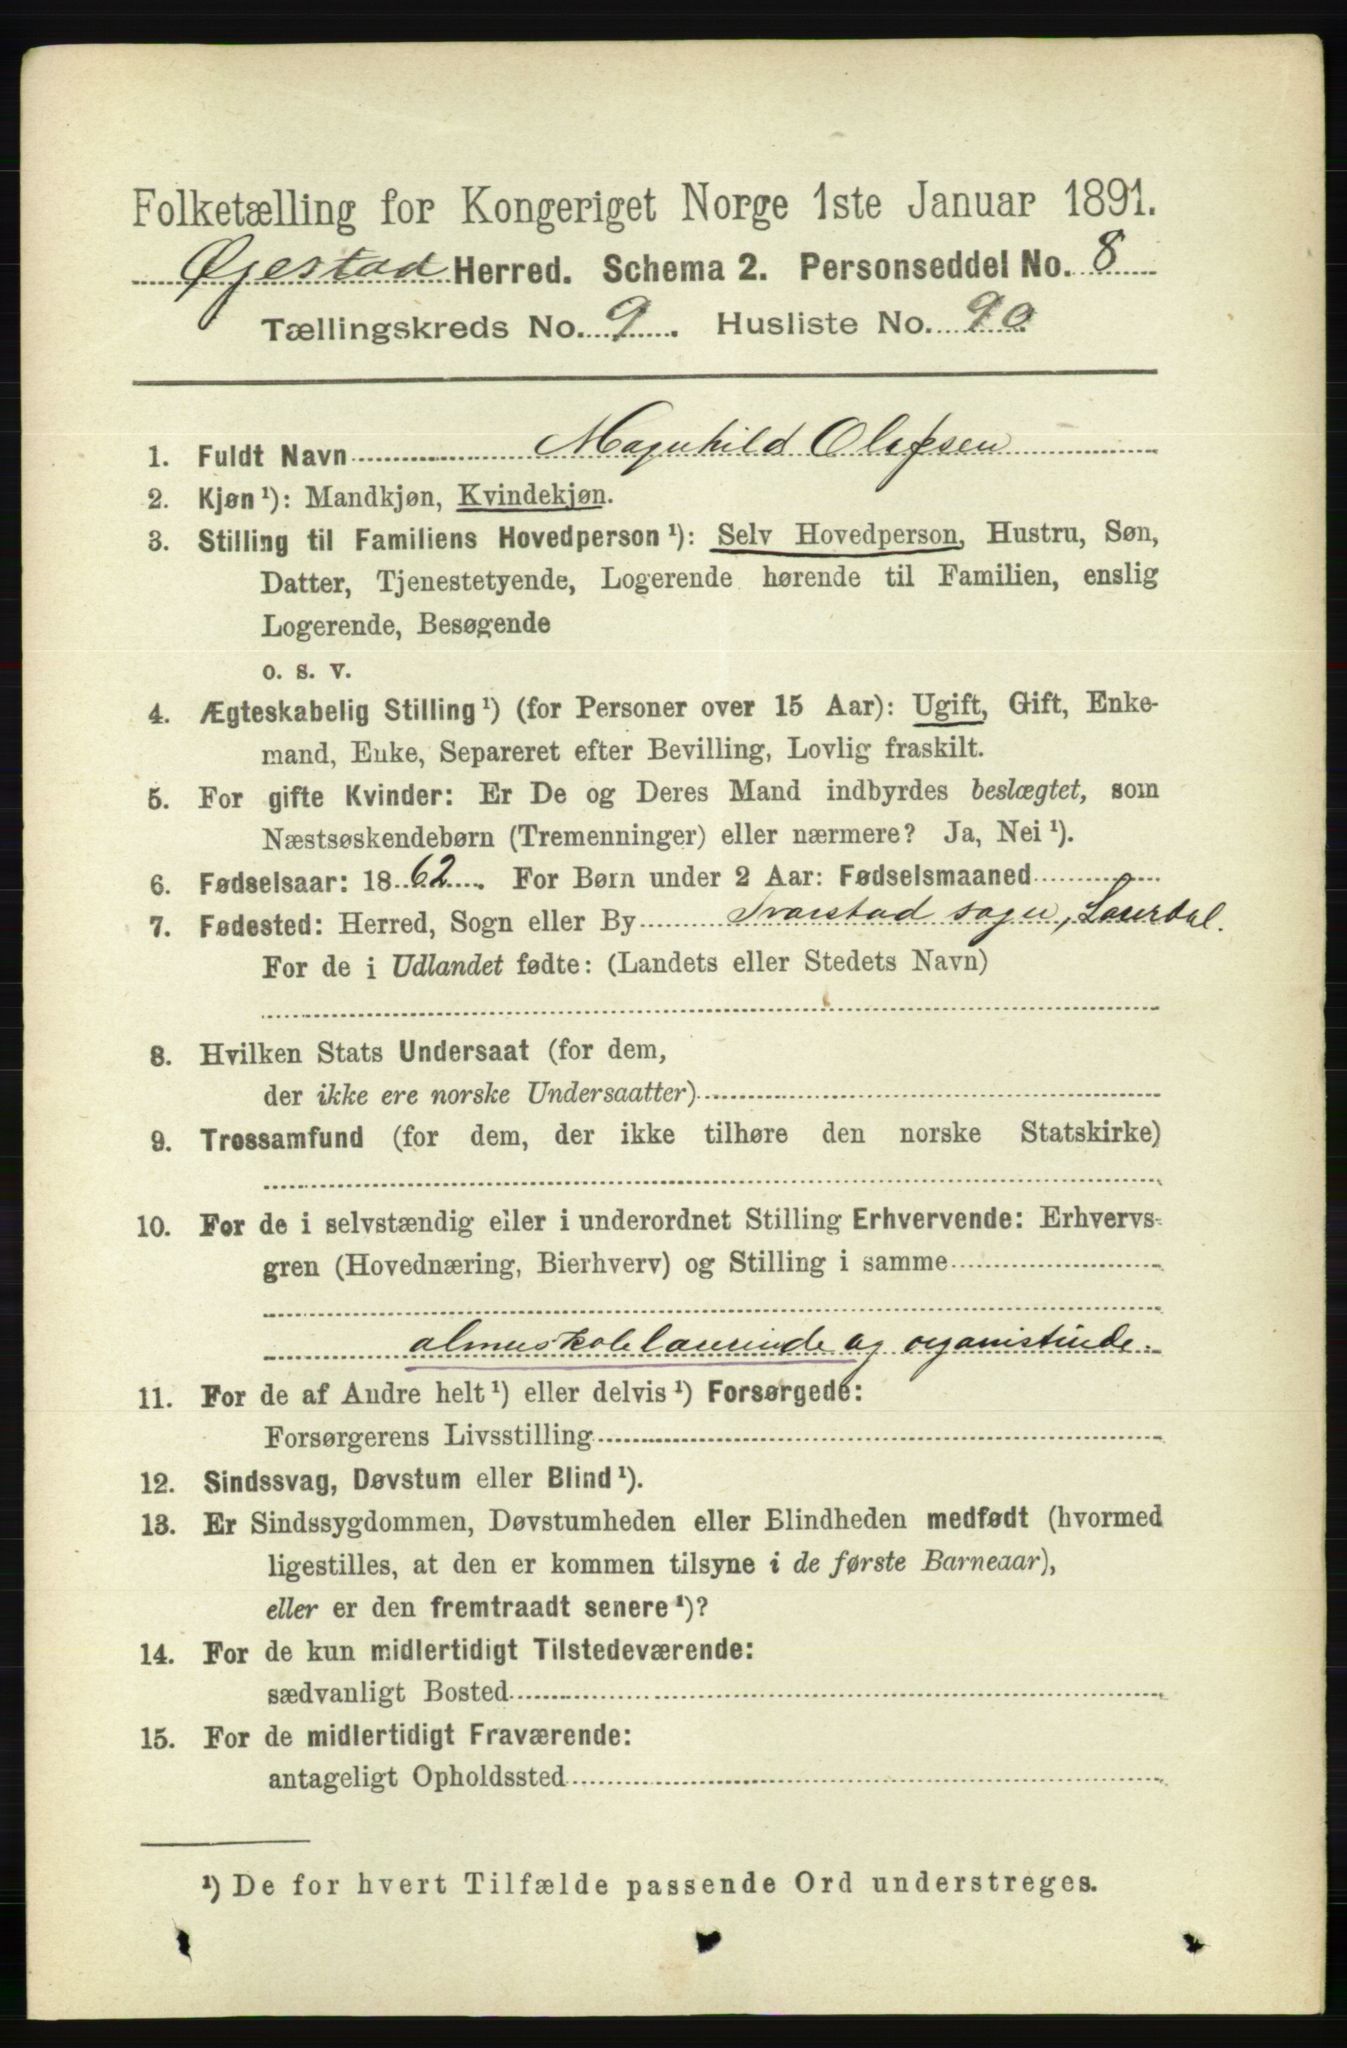 Folketælling for Kongeriget Norge 1ste Januar 1891.
Øjestad Herred. Schema 2. Personseddel No. 8
Tællingskreds No. 9. Husliste No. 90.
1. Fuldt Navn Magnhild Olefsen
2. Kjøn¹): Mandkjøn, Kvindekjøn.
3. Stilling til Familiens Hovedperson¹): Selv Hovedperson, Hustru, Søn,
Datter, Tjenestetyende, Logerende hørende til Familien, enslig
Logerende, Besøgende
o. s. v.
4. Ægteskabelig Stilling¹) (for Personer over 15 Aar): Ugift, Gift, Enke-
mand, Enke, Separeret efter Bevilling, Lovlig fraskilt.
5. For gifte Kvinder: Er De og Deres Mand indbyrdes beslægtet, som
Næstsøskendebørn (Tremenninger) eller nærmere? Ja, Nei¹).
6. Fødselsaar: 1862. For Børn under 2 Aar: Fødselsmaaned
7. Fødested: Herred, Sogn eller By Svarstad sogn, Laurdal.
For de i Udlandet fødte: (Landets eller Stedets Navn)
8. Hvilken Stats Undersaat (for dem,
der ikke ere norske Undersaatter)
9. Trossamfund (for dem, der ikke tilhøre den norske Statskirke)
10. For de i selvstændig eller i underordnet Stilling Erhvervende: Erhvervs-
gren (Hovednæring, Bierhverv) og Stilling i samme
almuskolelærerinde og organistinde.
11. For de af Andre helt¹) eller delvis¹) Forsørgede:
Forsørgerens Livsstilling
12. Sindssvag, Døvstum eller Blind¹).
13. Er Sindssygdommen, Døvstumheden eller Blindheden medfødt (hvormed
ligestilles, at den er kommen tilsyne i de første Barneaar),
eller er den fremtraadt senere¹)?
14. For de kun midlertidigt Tilstedeværende:
sædvanligt Bosted
15. For de midlertidigt Fraværende:
antageligt Opholdssted
¹) De for hvert Tilfælde passende Ord understreges.